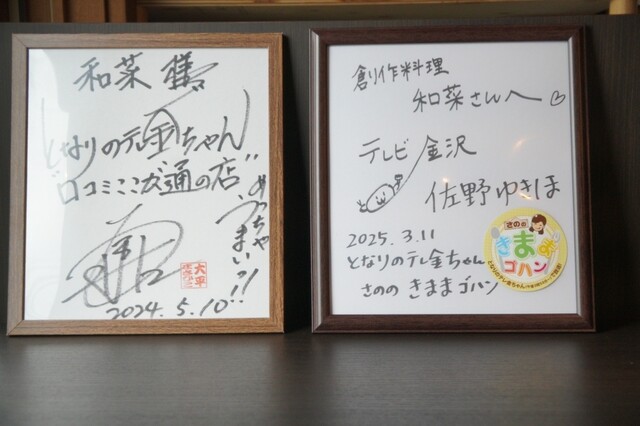 和菜 様
となりのテレ金ちゃん
"口コミここが通の店"
めっちゃ
うまいっ!!
大平
2024.5.10
創作料理
和菜さんへ♡
テレビ金沢
佐野ゆきほ
2025.3.11
となりのテレ金ちゃん
さのの きままゴハン
さのの
きまま
ゴハン
となりのテレ金ちゃん